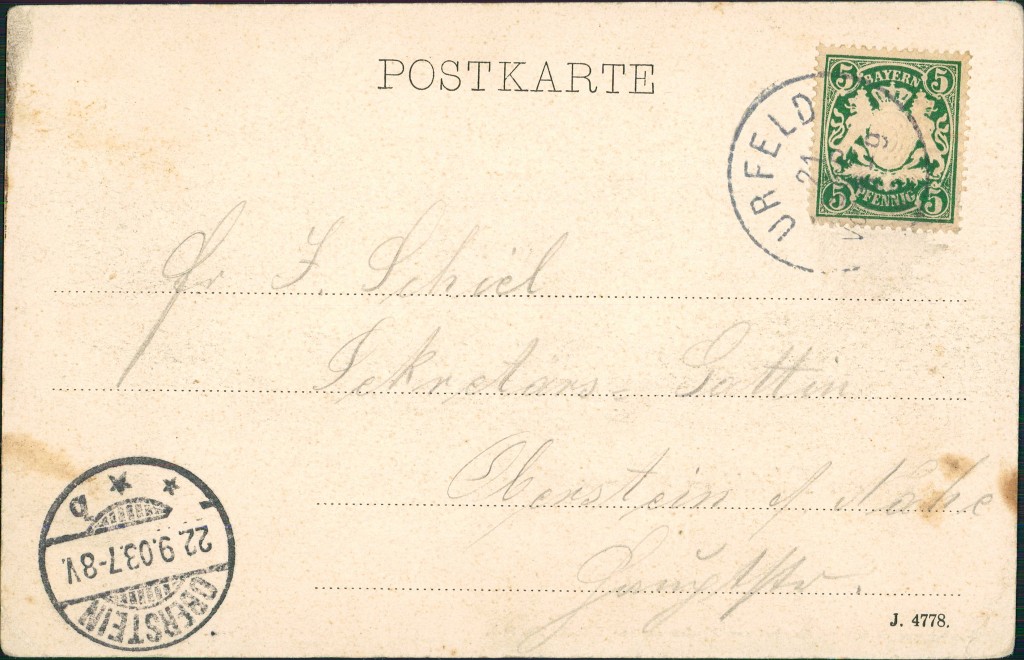 POSTKARTE
5 BAYERN 5
5 PFENNIG 5
URFELD
21
Fr J. Schiel
Sekretärs- Gattin
Oberstein a/ Nahe
Hauptstr.
OBERSTEIN
22.9.03.7-8V.
a
J. 4778.